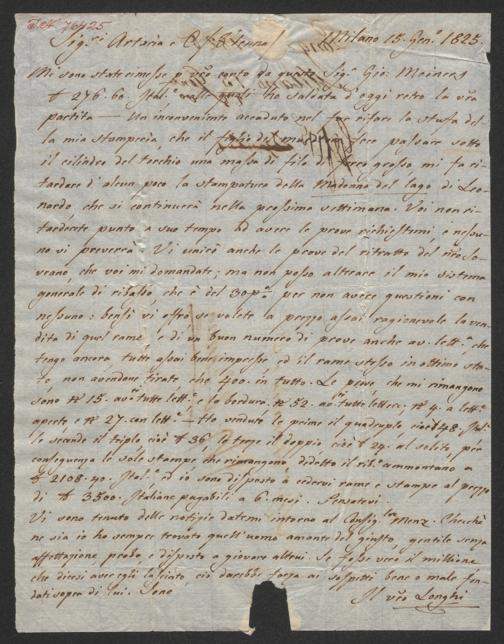 76425
Sig.ri Artaria e C. Vienna Milano 15. Gen.o 1825.
Mi sono state rimesse p. v.ro conto da questo Sig.r Gio. Meiners
276.60. Ital.e colle quali ho saldata d'oggi retro la v.ra
partita — Un inconveniente accaduto nel far rifare la stufa del
la mia stamperia, che il fece passare sotto
il cilindro del torchio una massa di filo grosso mi fa ri
tardare d'alcun poco la stampatura della Madonna del lago di Leo-
nardo, che si continuerà nella prossima settimana. Voi non ri-
tarderete punto a suo tempo ad avere le prove richiestemi e nessu-
no vi preverrà. Vi unirò anche le prove del ritratto del
che voi mi domandate; ma non posso alterare il mio sistema
generale di ribasso, che è del 30 p.% per non avere questioni con
nessuno: bensì vi offro se volete a prezzo assai ragionevole la ven-
dita di quel rame, e di un buon numero di prove anche av. lett.e che
tengo ancora tutte assai bene impresse ed il rame stesso in ottimo sta-
to, non avendone tirate che 400. in tutto. Le prove che mi rimangono
sono N. 15. av. tutte lett.e e la bordura. N. 52. av. tutte lettere; N. 4. a lett.e
aperte, e N. 27. con lett.e — Io vendute le prime il quadruplo cioè 48. Ital.
le seconde il triplo cioè 36, le terze il doppio cioè 24. al solito, per
conseguenza le sole stampe che rimangono, dedotto il rib.o ammontano a
2108.40. Ital.e ed io sono disposto a cedervi rame e stampe al prezzo
di 3500. Italiane pagabili a 6. mesi. Pensatevi.
Vi sono tenuto delle notizie datemi intorno al Consig.re Menz. Checchè
ne sia io ho sempre trovato quell'uomo amante del giusto, gentile senza
affettazione, probo e disposto a giovare altrui. Se fosse vero il millione
che dicesi aver egli lasciato, ciò darebbe forza ai sospetti bene o male fon-
dati sopra di lui. Sono Il v.ro Longhi